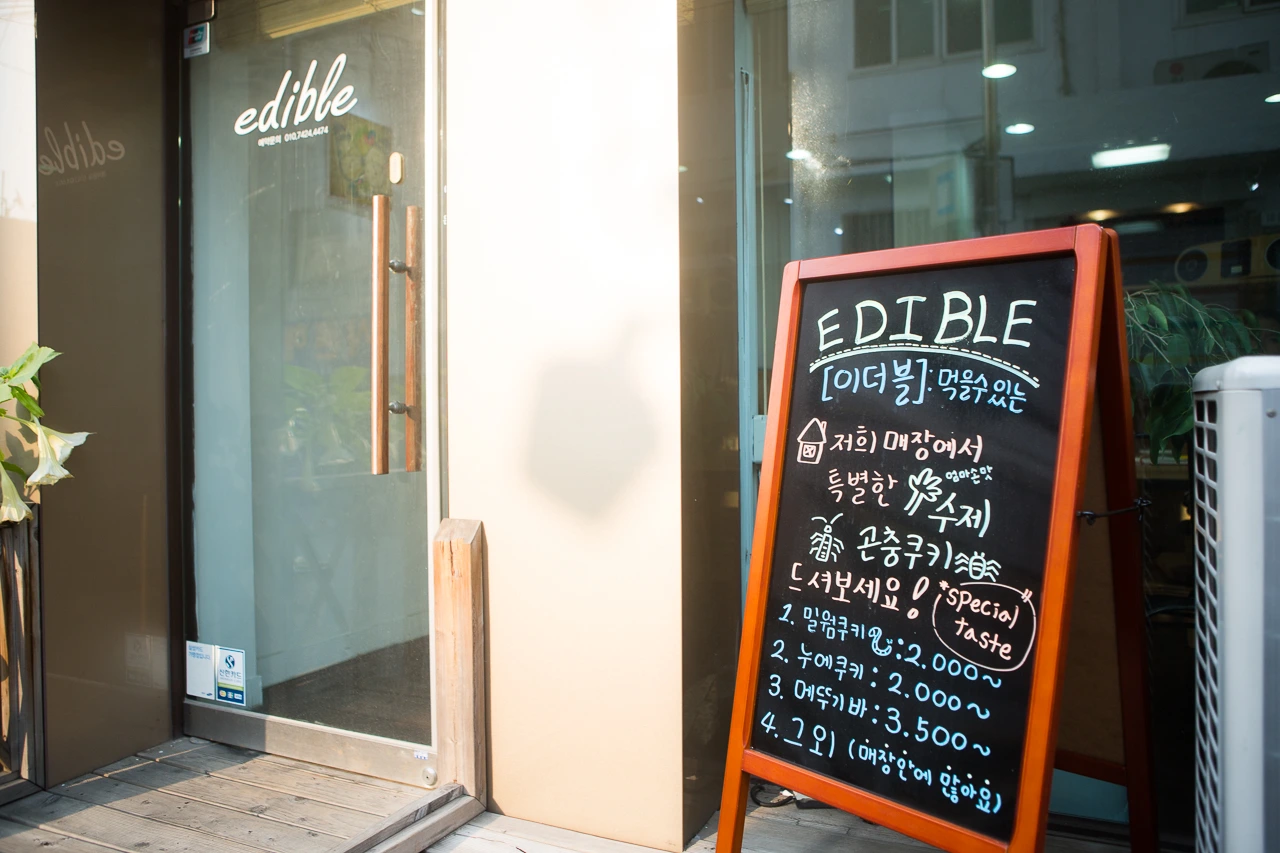 edible
예약문의 010.7424.4474
EDIBLE
[이더블]: 먹을수있는
저희 매장에서
특별한 엄마손맛
수제
곤충쿠키
드셔보세요!
"special
taste"
1. 밀웜쿠키 : 2.000~
2. 누에쿠키 : 2.000~
3. 메뚜기바 : 3.500~
4. 그 외 (매장안에 많아요)
신한카드